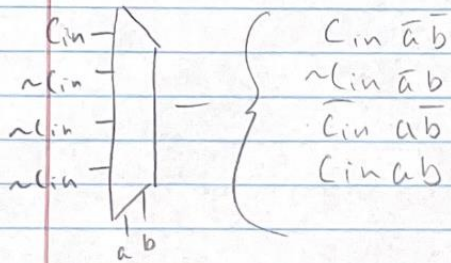 Cin
~Cin
~Cin
~Cin
a b
Cin a̅ b̅
~Cin a̅ b
C̅i̅n̅ a b̅
Cin a b